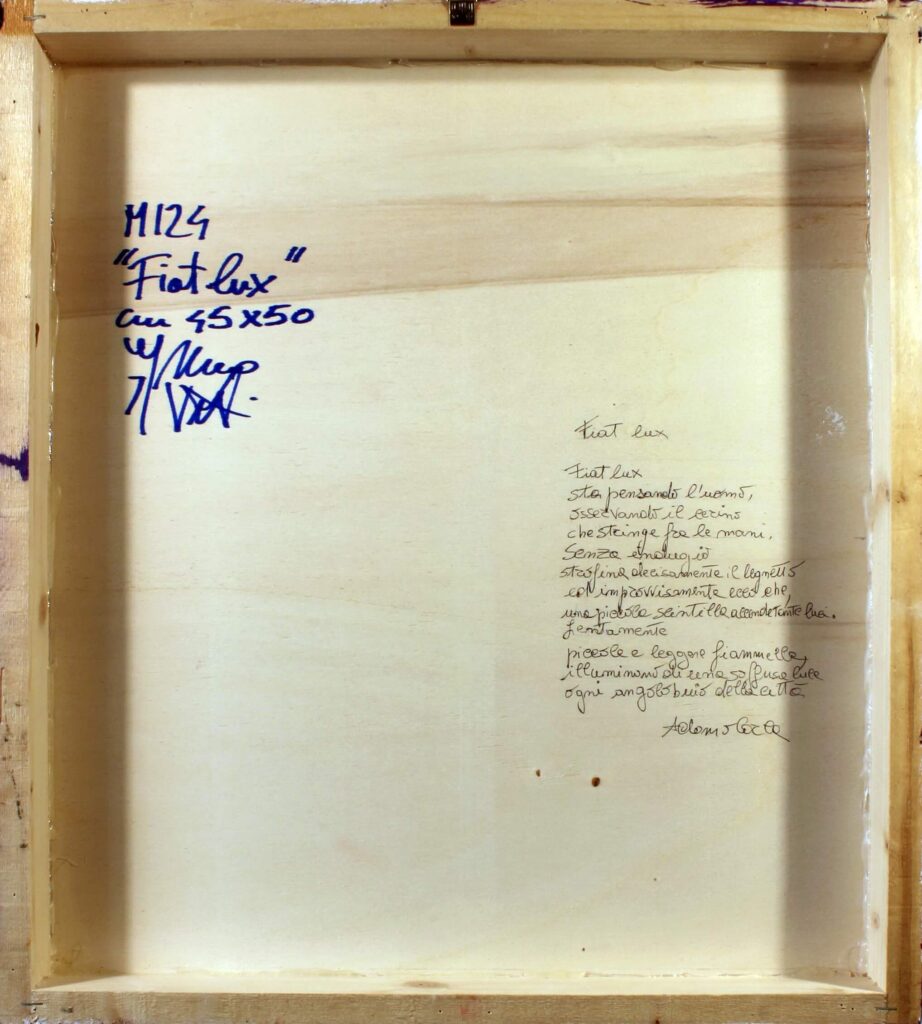 M124
"Fiat lux"
cm 45x50
Fiat lux
Fiat lux
sta pensando l'uomo,
osservando il cerino
che stringe fra le mani.
Senza indugio
strofina decisamente il legnetto
ed improvvisamente ecco che,
una piccola scintilla accende tante luci.
Lentamente
piccole e leggere fiammelle,
illuminano di una soffusa luce
ogni angolo buio della città